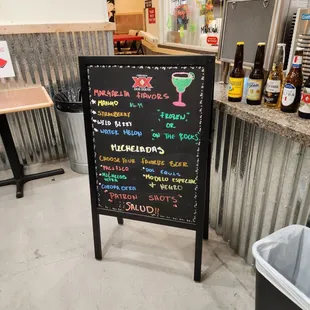 MARGARITA FLAVORS
* MANGO
* STRAWBERRY
* WILD BERRY
* WATER MELON
FROZEN
OR
ON THE ROCKS
MICHELADAS
CHOOSE YOUR FAVORITE BEER
* PACIFICO
* DOS EQUIS
* MICHELOB ULTRA
* MODELO ESPECIAL + NEGRO
* CORONA EXTRA
PATRON SHOTS
¡¡SALUD!!